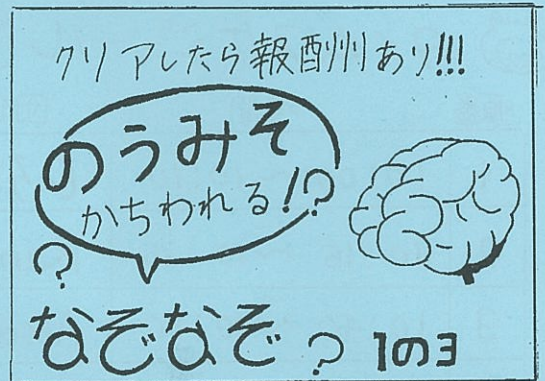 クリアしたら報酬あり!!!
のうみそ
かちわれる!?
?
なぞなぞ? 1の3